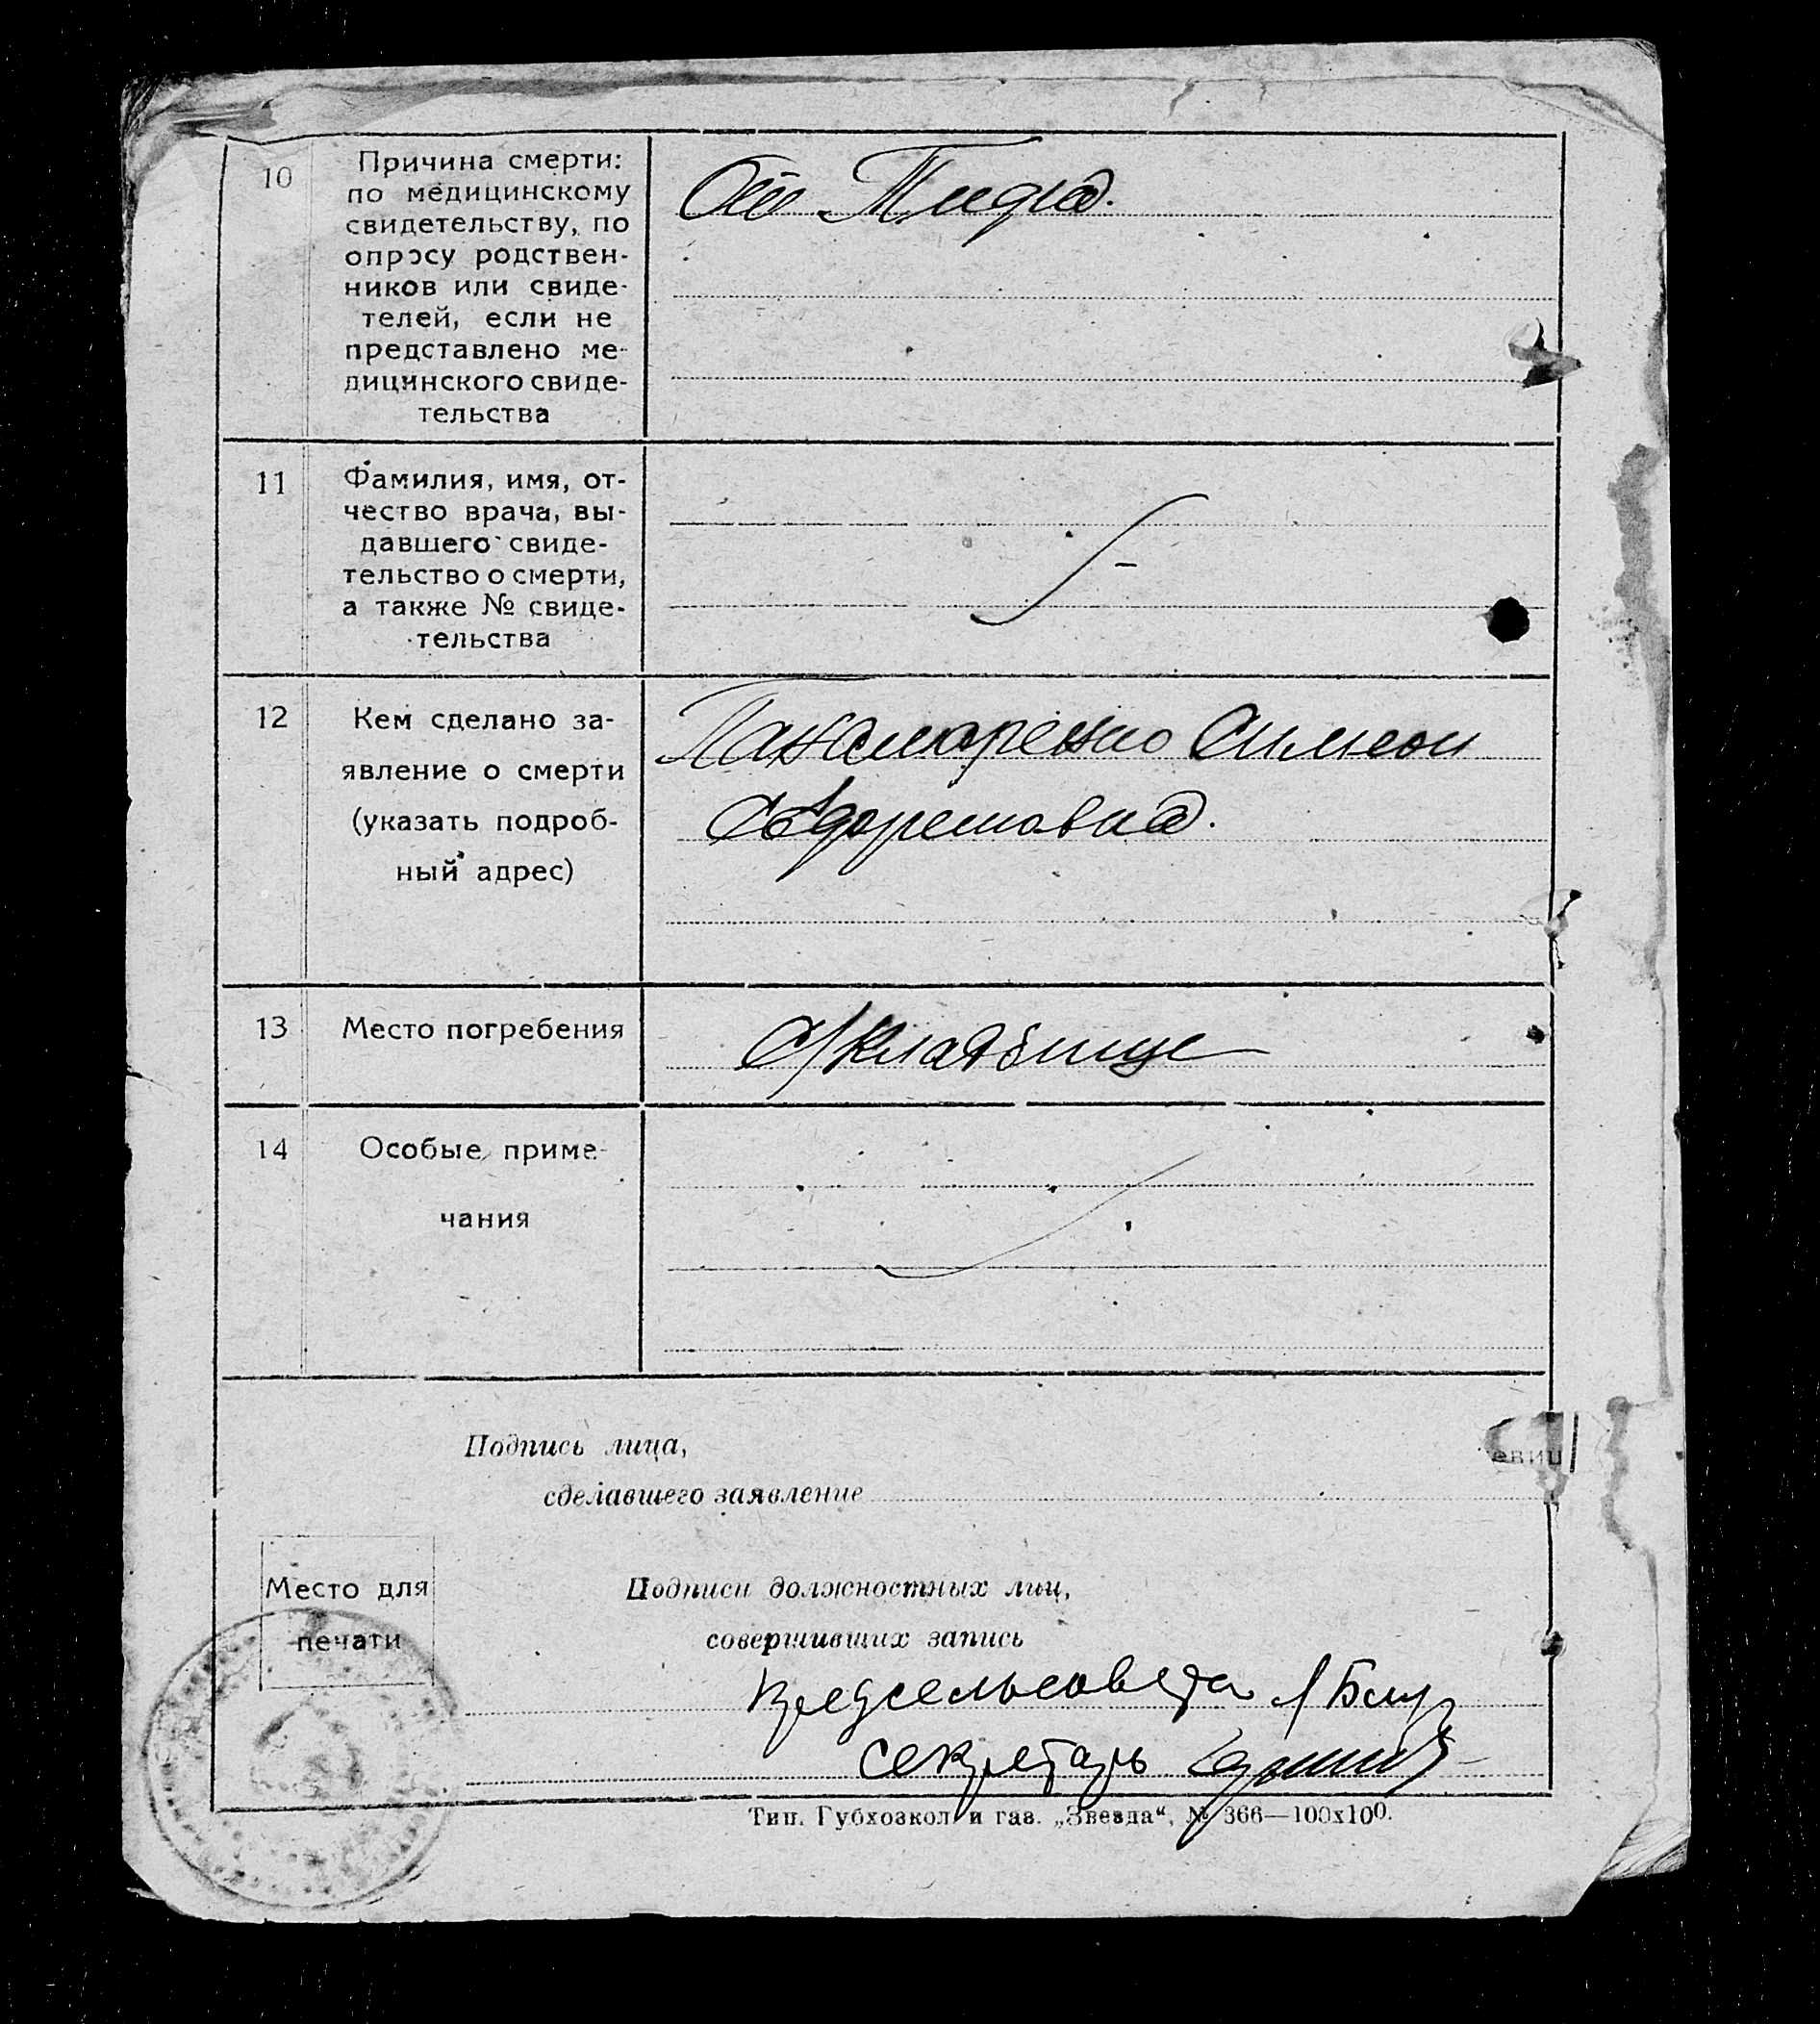 10
Причина смерти:
по медицинскому
свидетельству, по
опросу родствен-
ников или свиде-
телей, если не
представлено ме-
дицинского свиде-
тельства
От Тифа.
11
Фамилия, имя, от-
чество врача, вы-
давшего свиде-
тельство о смерти,
а также № свиде-
тельства
12
Кем сделано за-
явление о смерти
(указать подроб-
ный адрес)
Симеон
13
Место погребения
С/Кладбище
14
Особые приме-
чания
Подпись лица,
евиц
сделавшего заявление
Место для
печати
Подписи должностных лиц,
совершивших запись
Предсельсовета
секретарь
Тип. Губхозкол. и газ. „Звезда“, № 366—100х100.